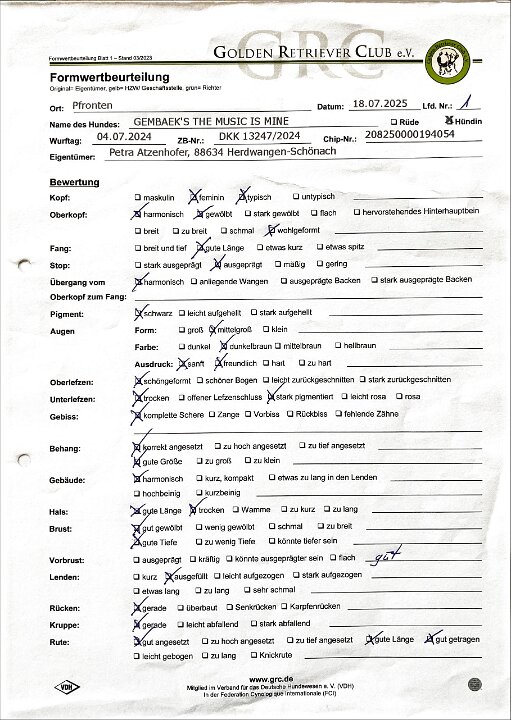 Formwertbeurteilung Blatt 1 – Stand 03/2023
GRC
GOLDEN RETRIEVER CLUB e.V.
Formwertbeurteilung
Original= Eigentümer, gelb= HZW/ Geschäftsstelle, grün= Richter
Ort: Pfronten Datum: 18.07.2025 Lfd. Nr.: 1
Name des Hundes: GEMBAEK'S THE MUSIC IS MINE ❑ Rüde ☒ Hündin
Wurftag: 04.07.2024 ZB-Nr.: DKK 13247/2024 Chip-Nr.: 208250000194054
Eigentümer: Petra Atzenhofer, 88634 Herdwangen-Schönach
Bewertung
Kopf: ❑ maskulin ☒ feminin ☒ typisch ❑ untypisch
Oberkopf: ☒ harmonisch ☒ gewölbt ❑ stark gewölbt ❑ flach ❑ hervorstehendes Hinterhauptbein
❑ breit ❑ zu breit ❑ schmal ☒ wohlgeformt
Fang: ❑ breit und tief ☒ gute Länge ❑ etwas kurz ❑ etwas spitz
Stop: ❑ stark ausgeprägt ☒ ausgeprägt ❑ mäßig ❑ gering
Übergang vom ☒ harmonisch ❑ anliegende Wangen ❑ ausgeprägte Backen ❑ stark ausgeprägte Backen
Oberkopf zum Fang:
Pigment: ☒ schwarz ❑ leicht aufgehellt ❑ stark aufgehellt
Augen Form: ❑ groß ☒ mittelgroß ❑ klein
Farbe: ❑ dunkel ☒ dunkelbraun ❑ mittelbraun ❑ hellbraun
Ausdruck: ☒ sanft ☒ freundlich ❑ hart ❑ zu hart
Oberlefzen: ☒ schöngeformt ❑ schöner Bogen ❑ leicht zurückgeschnitten ❑ stark zurückgeschnitten
Unterlefzen: ☒ trocken ❑ offener Lefzenschluss ☒ stark pigmentiert ❑ leicht rosa ❑ rosa
Gebiss: ☒ komplette Schere ❑ Zange ❑ Vorbiss ❑ Rückbiss ❑ fehlende Zähne
Behang: ☒ korrekt angesetzt ❑ zu hoch angesetzt ❑ zu tief angesetzt
☒ gute Größe ❑ zu groß ❑ zu klein
Gebäude: ☒ harmonisch ❑ kurz, kompakt ❑ etwas zu lang in den Lenden
❑ hochbeinig ❑ kurzbeinig
Hals: ☒ gute Länge ☒ trocken ❑ Wamme ❑ zu kurz ❑ zu lang
Brust: ☒ gut gewölbt ❑ wenig gewölbt ❑ schmal ❑ zu breit
☒ gute Tiefe ❑ zu wenig Tiefe ❑ könnte tiefer sein
Vorbrust: ❑ ausgeprägt ❑ kräftig ❑ könnte ausgeprägter sein ❑ flach gut
Lenden: ❑ kurz ☒ ausgefüllt ❑ leicht aufgezogen ❑ stark aufgezogen
❑ etwas lang ❑ zu lang ❑ sehr schmal
Rücken: ☒ gerade ❑ überbaut ❑ Senkrücken ❑ Karpfenrücken
Kruppe: ☒ gerade ❑ leicht abfallend ❑ stark abfallend
Rute: ☒ gut angesetzt ❑ zu hoch angesetzt ❑ zu tief angesetzt ☒ gute Länge ☒ gut getragen
❑ leicht gebogen ❑ zu lang ❑ Knickrute
www.grc.de
VDH Mitglied im Verband für das Deutsche Hundewesen e. V. (VDH)
In der Federation Cynologique Internationale (FCI)